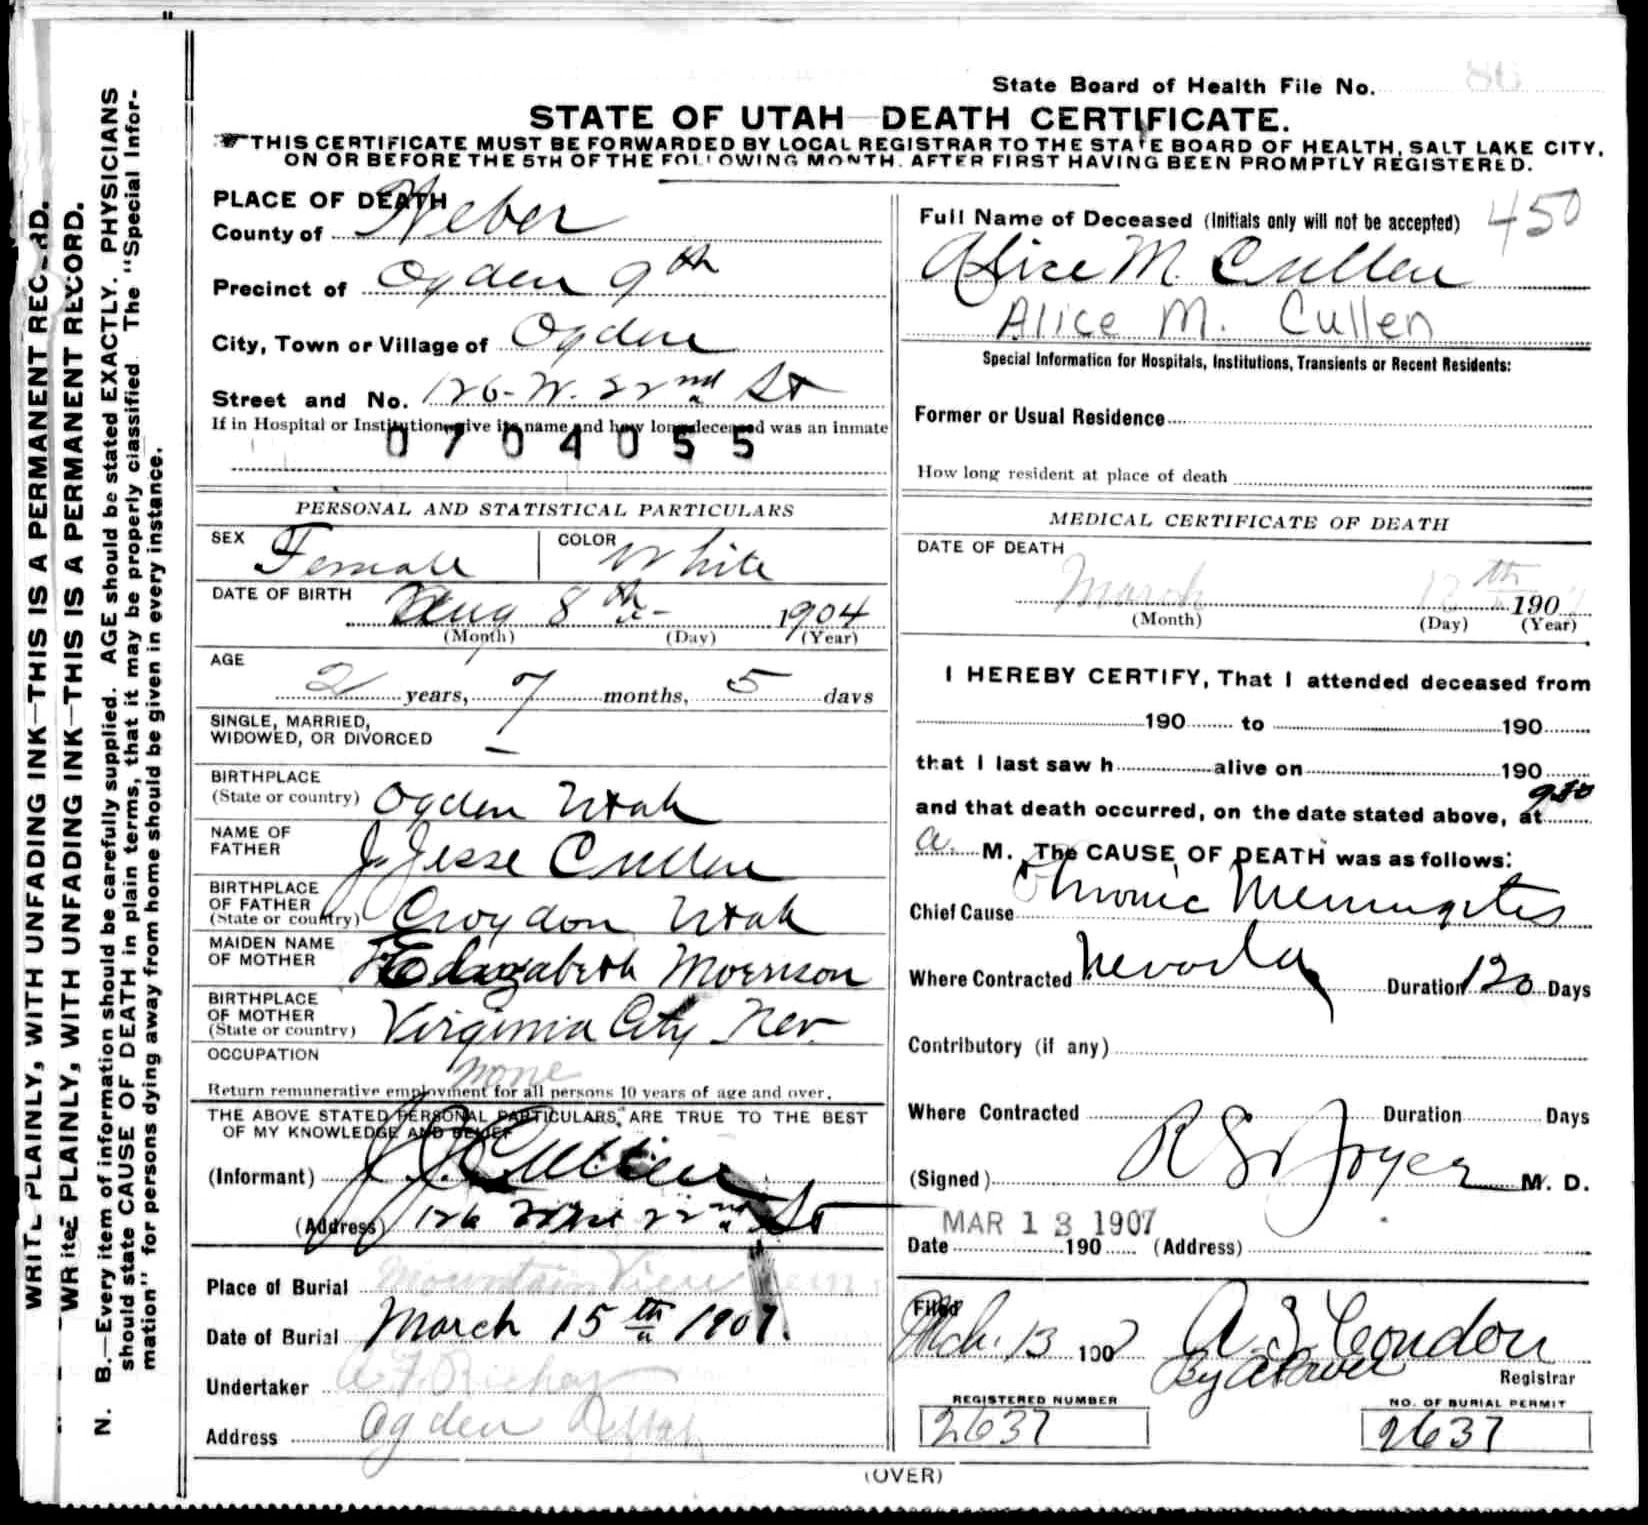 State Board of Health File No. 86
STATE OF UTAH—DEATH CERTIFICATE.
THIS CERTIFICATE MUST BE FORWARDED BY LOCAL REGISTRAR TO THE STATE BOARD OF HEALTH, SALT LAKE CITY,
ON OR BEFORE THE 5TH OF THE FOLLOWING MONTH, AFTER FIRST HAVING BEEN PROMPTLY REGISTERED.
WRITE PLAINLY, WITH UNFADING INK—THIS IS A PERMANENT RECORD.
WRITE PLAINLY, WITH UNFADING INK—THIS IS A PERMANENT RECORD.
N. B.—Every item of information should be carefully supplied. AGE should be stated EXACTLY. PHYSICIANS
should state CAUSE OF DEATH in plain terms, that it may be properly classified. The "Special Infor-
mation" for persons dying away from home should be given in every instance.
PLACE OF DEATH
County of Weber
Precinct of Ogden 9th
City, Town or Village of Ogden
Street and No. 126 - W. 22nd St
If in Hospital or Institution, give its name and how long deceased was an inmate
0704055
PERSONAL AND STATISTICAL PARTICULARS
SEX Female COLOR White
DATE OF BIRTH Aug 8th 1904
(Month) (Day) (Year)
AGE
2 years, 7 months, 5 days
SINGLE, MARRIED,
WIDOWED, OR DIVORCED —
BIRTHPLACE
(State or country) Ogden Utah
NAME OF
FATHER J. Jesse Cullen
BIRTHPLACE
OF FATHER
(State or country) Croydon Utah
MAIDEN NAME
OF MOTHER Elizabeth Morrison
BIRTHPLACE
OF MOTHER
(State or country) Virginia City Nev.
OCCUPATION none
Return remunerative employment for all persons 10 years of age and over.
THE ABOVE STATED PERSONAL PARTICULARS, ARE TRUE TO THE BEST
OF MY KNOWLEDGE AND BELIEF
(Informant) J. J. Cullen
(Address) 126 West 22nd St
Place of Burial Mountain View Cem
Date of Burial March 15th 1907.
Undertaker
Address Ogden Utah
450
Full Name of Deceased (Initials only will not be accepted)
Alice M. Cullen
Alice M. Cullen
Special Information for Hospitals, Institutions, Transients or Recent Residents:
Former or Usual Residence
How long resident at place of death
MEDICAL CERTIFICATE OF DEATH
DATE OF DEATH
March th 190
(Month) (Day) (Year)
I HEREBY CERTIFY, That I attended deceased from
190 to 190
that I last saw h alive on 190
and that death occurred, on the date stated above, at 930
a. M. The CAUSE OF DEATH was as follows:
Chief Cause Chronic Meningitis
Where Contracted Nevada Duration 120 Days
Contributory (if any)
Where Contracted Duration Days
(Signed) R S Joyce M. D.
MAR 13 1907
Date 190 (Address)
Filed Mch. 13 1907 A. S. Condon
By Registrar
REGISTERED NUMBER
2637
NO. OF BURIAL PERMIT
2637
(OVER)